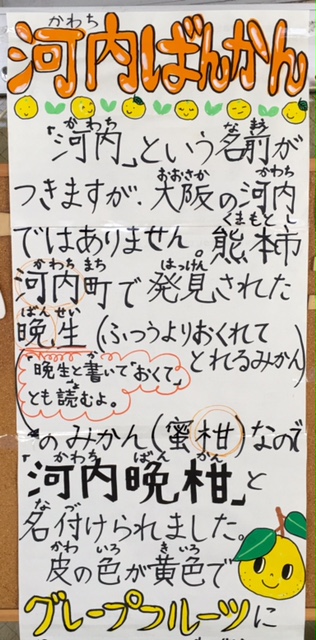 かわち
河内ばんかん
かわち なまえ
「河内」という名前が
おおさか かわち
つきますが、大阪の河内
くまもとし
ではありません。熊本市
かわち まち はっけん
河内町で発見された
ばんせい
晩生(ふつうよりおくれて
とれるみかん)
か
「晩生と書いて「おくて」
よ
とも読むよ。
のみかん(蜜柑)なので
かわち ばん かん
「河内晩柑」と
な づ
名付けられました。
かわ いろ きいろ
皮の色が黄色で
グレープフルーツに